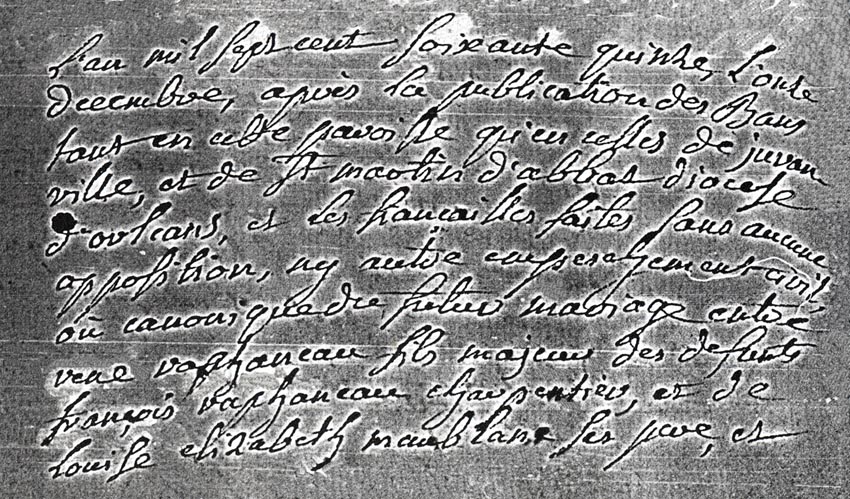 L'an mil sept cent soixante quinze, L'onze
decembre, après la publication des Bans
tant en cette paroisse qu'en celles de juran
ville, et de St martin d'abbat diocese
d'orleans, et les fiançailles faites sans aucune
apposition, ny autre empeschement civil,
où canonique du futur mariage entre
rene raphaneau fils majeur des defunts
françois raphaneau charpentier, et de
Louise elizabeth ses pere, et